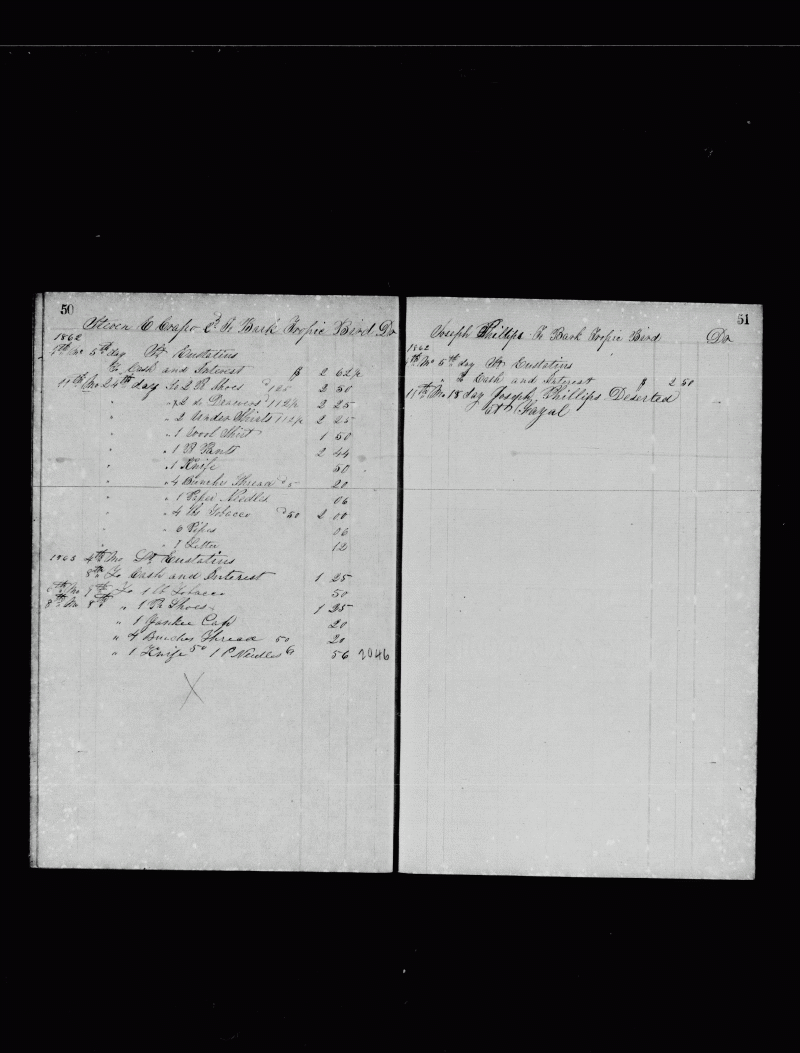 50
Steven C Crapo Cr To Bark Tropic Bird Dr
1862
9th Mo 5th day St Eustatius
To Cash and Interest $ 2 62½
11th Mo 24th day To 2 Pr Shoes 125 2 50
" " 2 do Drawers 112½ 2 25
" " 2 Under Shirts 112½ 2 25
" " 1 Wool Shirt 1 50
" " 1 Pr Pants 2 44
" " 1 Knife 50
" " 4 Bunches Thread 5 20
" " 1 Paper Needles 06
" " 4 lbs Tobacco 50 2 00
" " 6 Pipes 06
" " 1 Letter 12
1863 4th Mo St Eustatius
8th To Cash and Interest 1 25
8th Mo 7th To 1 lb Tobacco 50
8th Mo 8th " 1 Pr Shoes 1 25
" 1 Yankee Cap 20
" 4 Bunches Thread 50 20
" 1 Knife 50 1 P Needles 6 56 2046
X
51
Joseph Phillips To Bark Tropic Bird Dr
1862
9th Mo 5th day St Eustatius
" To Cash and Interest $ 2 50
11th Mo 18 day Joseph Phillips Deserted
at Fayal